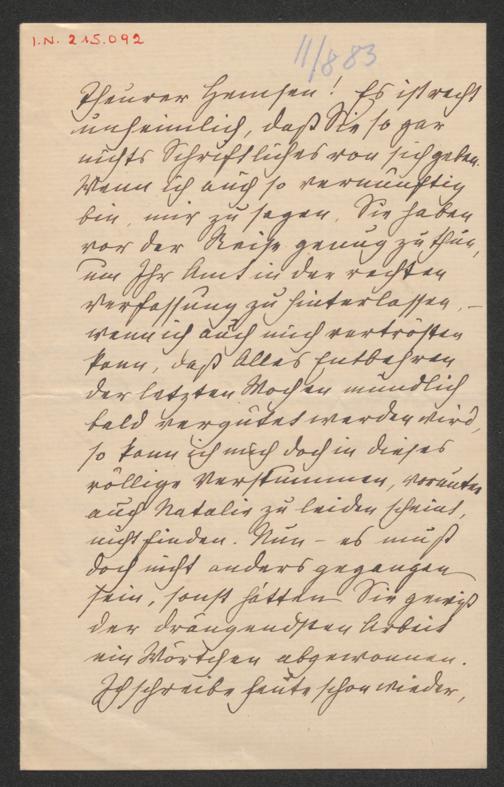 I.N. 215.092
11/8 83
Theurer Hemsen! Es ist recht
unheimlich, daß Sie so gar
nichts Schriftliches von sich geben.
Wenn ich auch so vernünftig
bin, mir zu sagen, Sie haben
vor der Reise genug zu thun,
um Ihr Amt in der rechten
Verfassung zu hinterlassen, –
wenn ich auch mich vertrösten
kann, daß alles Entbehren
der letzten Wochen mündlich
bald vergütet werden wird,
so kann ich mich doch in dieses
völlige Verstummen, worunter
auch Natalie zu leiden scheint,
nicht finden. Nun – es muß
doch nicht anders gegangen
sein, sonst hätten Sie gewiß
der drängendsten Arbeit
ein Wörtchen abgewonnen.
Ich schreibe heute schon wieder,